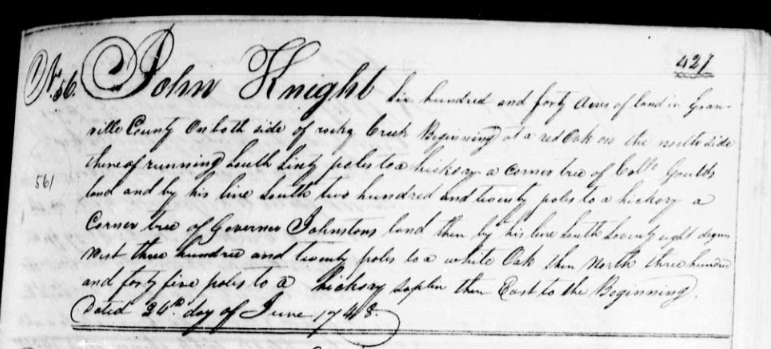 427
No. 56. John Knight six hundred and forty Acres of land in Gran-
ville County On both side of rocky Creek Beginning at a red Oak on the north side
thereof running South Sixty poles to a hickory a corner tree of Collo Goulds
561
land and by his line South two hundred and twenty poles to a hickory a
Corner tree of Governor Johnstons land then by his line South Seventy eight degrees
West three hundred and twenty poles to a white Oak then North three hundred
and forty five poles to a hickory saplin then East to the Beginning.
Dated day of June 1748.